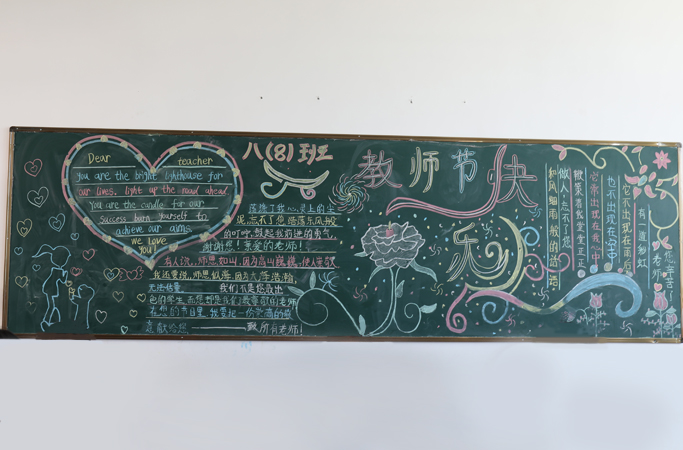 Dear teacher
you are the bright lighthouse for
our lives, light up the road ahead
You are the candle for our
success burn yourself to
achieve our aims.
we Love
you!
八(8)班
荡涤了我心灵上的尘
泥,忘不了您浩荡东风般
的叮咛,鼓起我前进的勇气,
谢谢您!亲爱的老师!
有人说,师恩如山,因为高山巍巍,使人崇敬
我还要说,师恩似海,因为大海浩瀚,
无法估量. 我们不是您最出
色的学生,而您却是我们最尊敬的老师
在您的节日里,我要把一份崇高的
喜献给您 ——致所有老师!
教师节快
乐
和风细雨般的话语
做人,忘不了您
教案者我堂堂正正
它亲出现在我心中
也不出现在空中
它不出现在雨后
有一道彩虹
老师
您辛苦